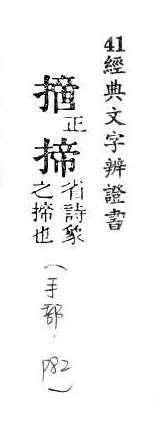 41經典文字辨證書
摘正揥省詩象
之揥也
(手部.P82)